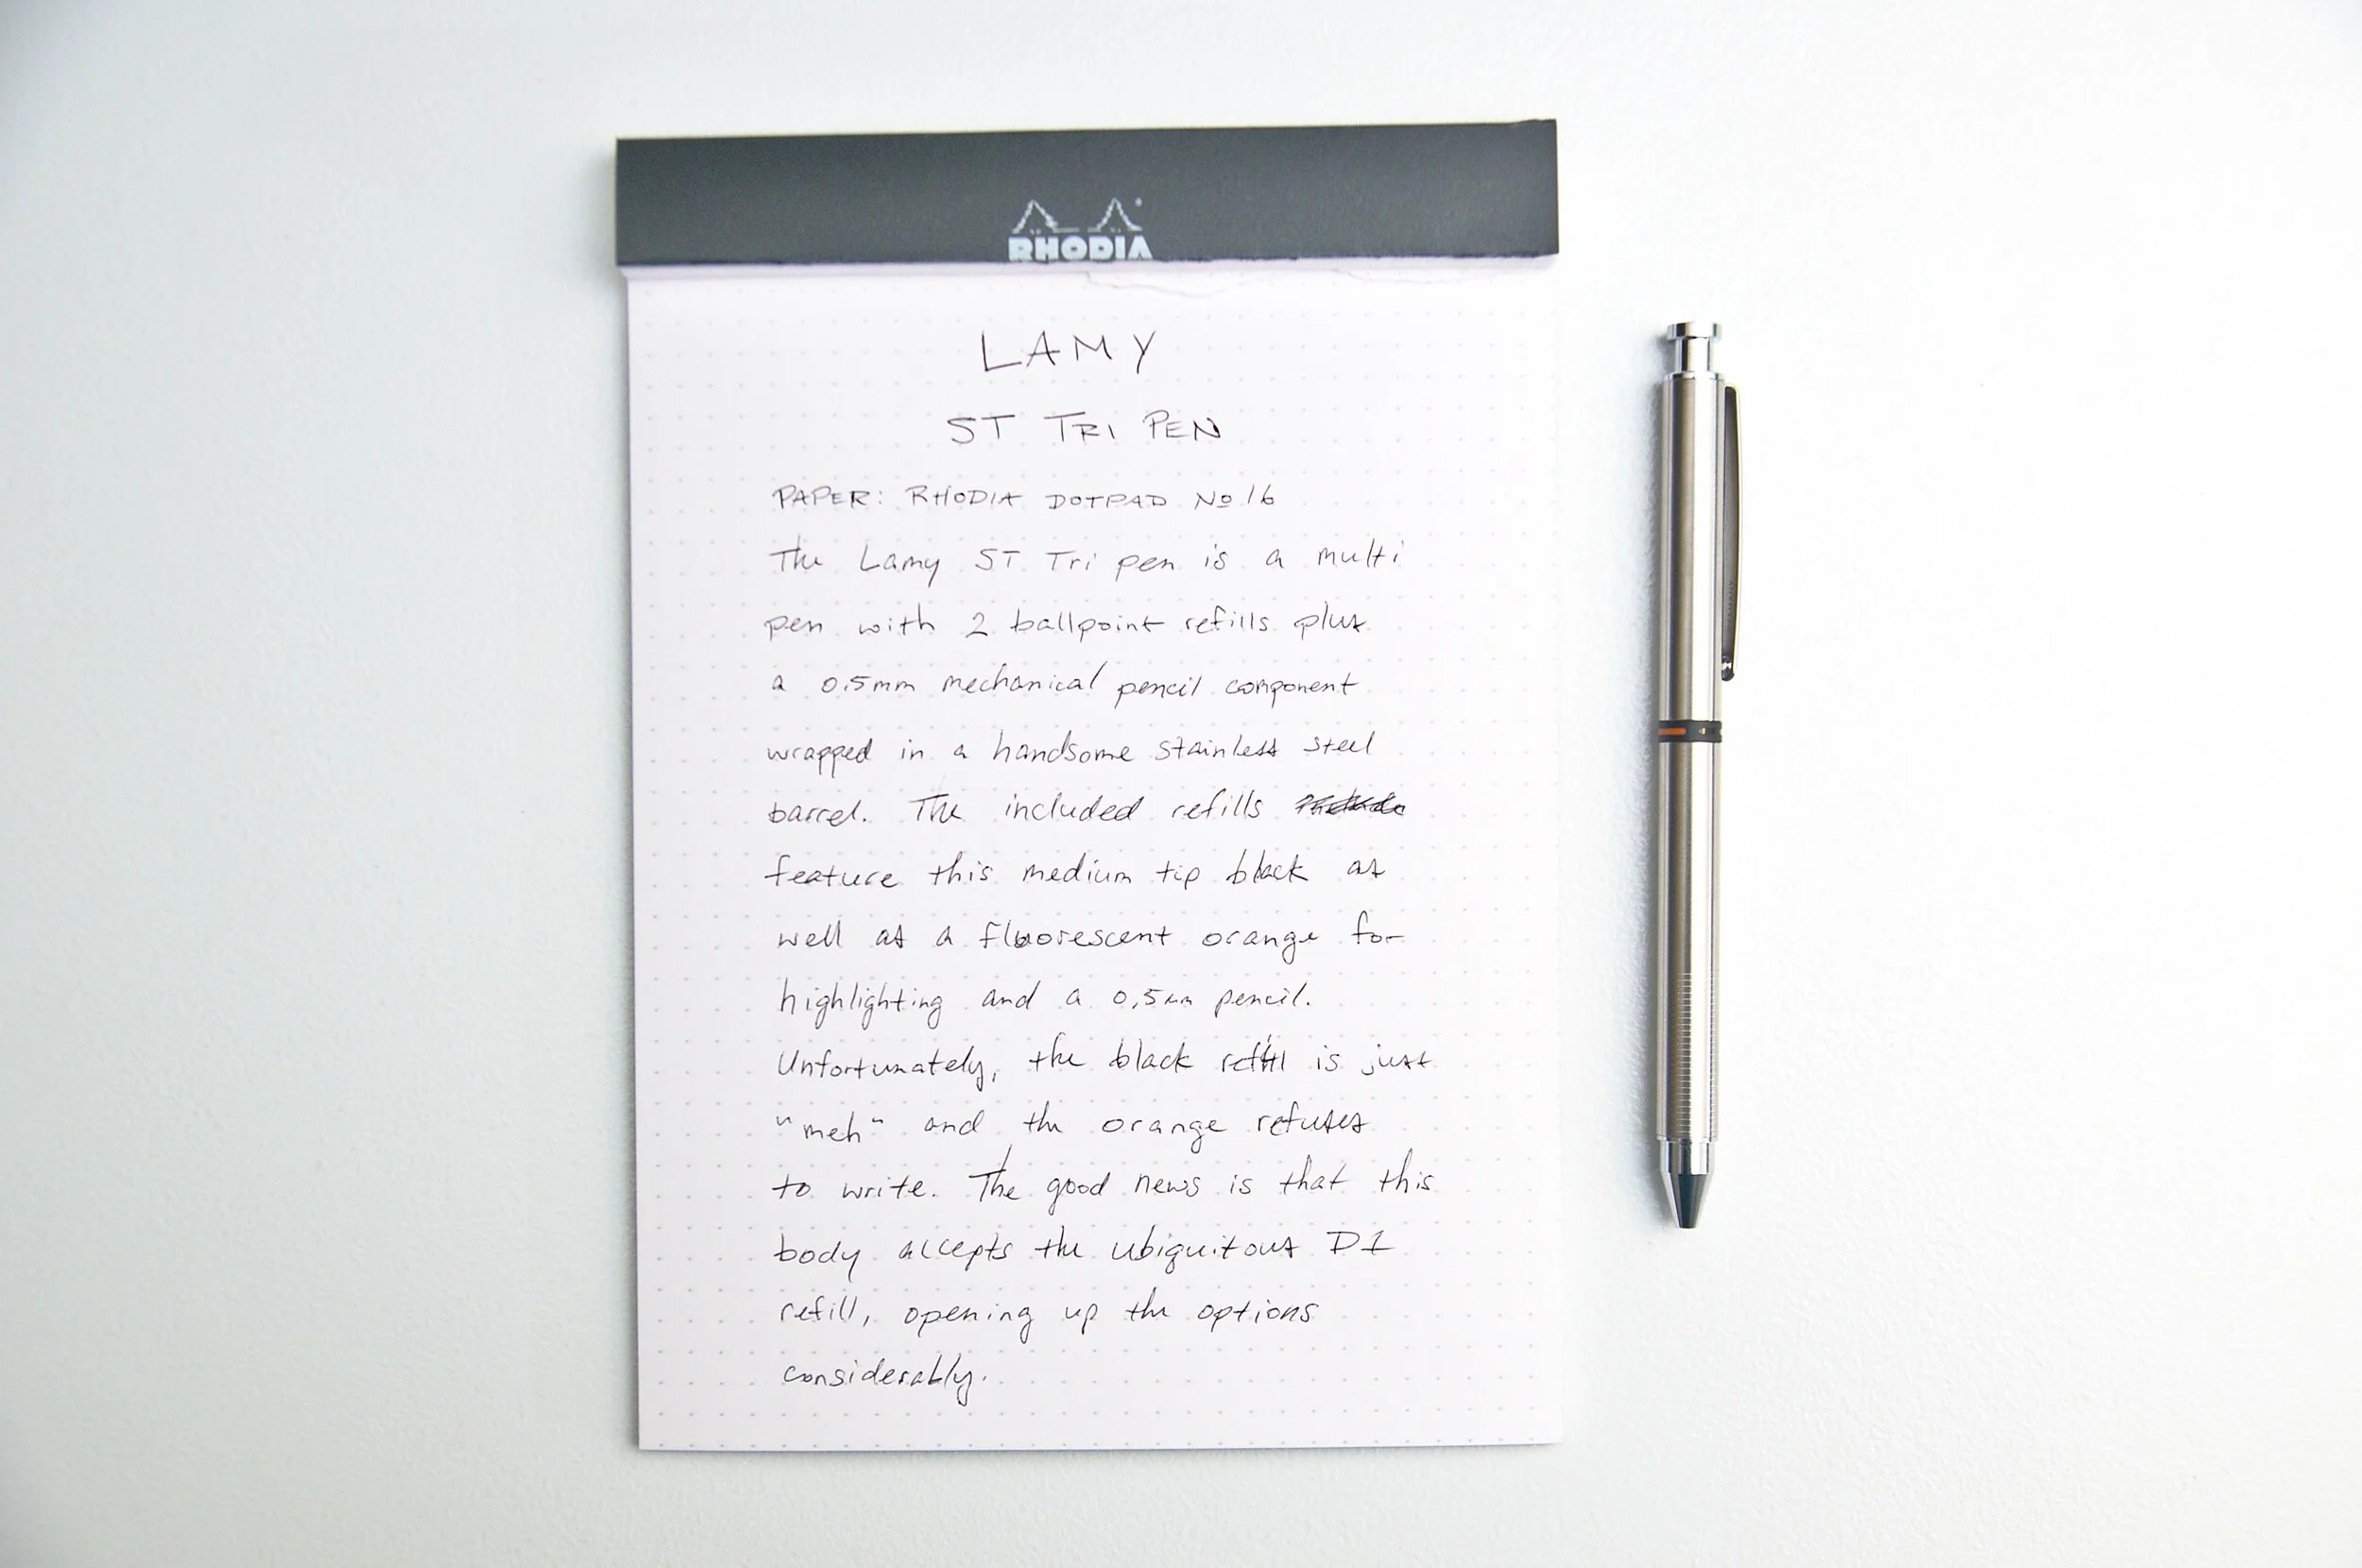 RHODIA
LAMY
ST TRI PEN
PAPER: RHODIA DOTPAD No 16
The Lamy ST Tri pen is a multi
pen with 2 ballpoint refills plus
a 0.5mm mechanical pencil component
wrapped in a handsome stainless steel
barrel. The included refills
feature this medium tip black as
well as a fluorescent orange for
highlighting and a 0.5mm pencil.
Unfortunately, the black refill is just
"meh" and the orange refuses
to write. The good news is that this
body accepts the ubiquitous D1
refill, opening up the options
considerably.